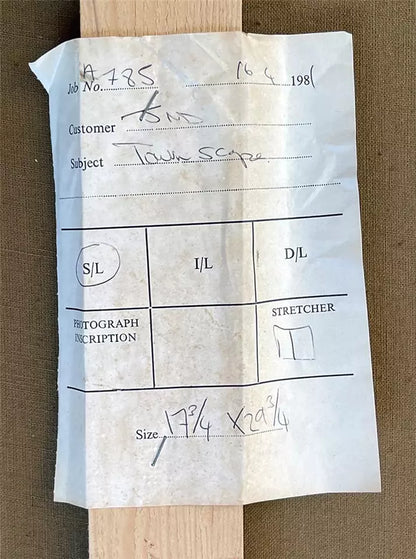 Job No. A785 16 4 1981
Customer
Subject Town scape.
S/L I/L D/L
PHOTOGRAPH INSCRIPTION STRETCHER
Size 17 3/4 X 29 3/4